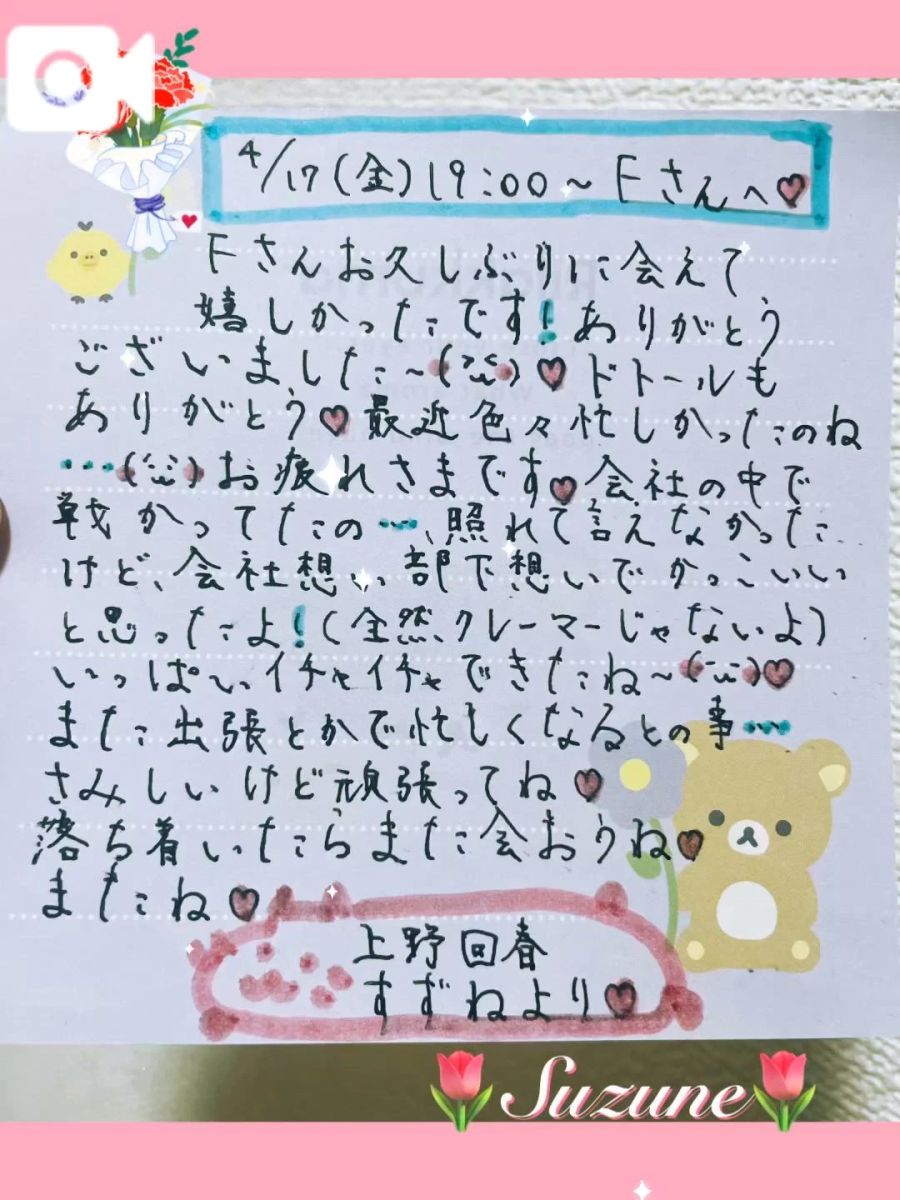 4/17(金)19:00~Fさんへ♥
Fさんお久しぶりに会えて
嬉しかったです!ありがとう
ございました~♥ドトールも
ありがとう♥最近色々忙しかったのね
…お疲れさまです♥会社の中で
戦かってたの…、照れて言えなかった
けど、会社想い、部下想いでかっこいい
と思ったよ!(全然クレーマーじゃないよ)
いっぱいイチャイチャできたね~♥
また出張とかで忙しくなるとの事…
さみしいけど頑張ってね♥
落ち着いたらまた会おうね♥
またね♥
上野回春
すずねより♥
Suzune